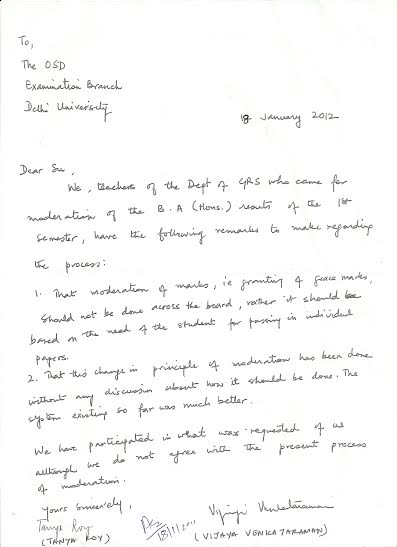 To,
The OSD
Examination Branch
Delhi University
18 January 2012
Dear Sir,
We, teachers of the Dept of GRS who came for
moderation of the B.A (Hons.) results of the 1st
Semester, have the following remarks to make regarding
the process:
1. That moderation of marks, ie granting of grace marks,
should not be done across the board, rather it should be
based on the need of the student for passing in individual
papers.
2. That this change in principle of moderation has been done
without any discussion about how it should be done. The
system existing so far was much better.
We have participated in what was requested of us
although we do not agree with the present process
of moderation.
Yours Sincerely,
Tanya Roy
(TANYA ROY)
Vijaya Venkataraman
(VIJAYA VENKATARAMAN)